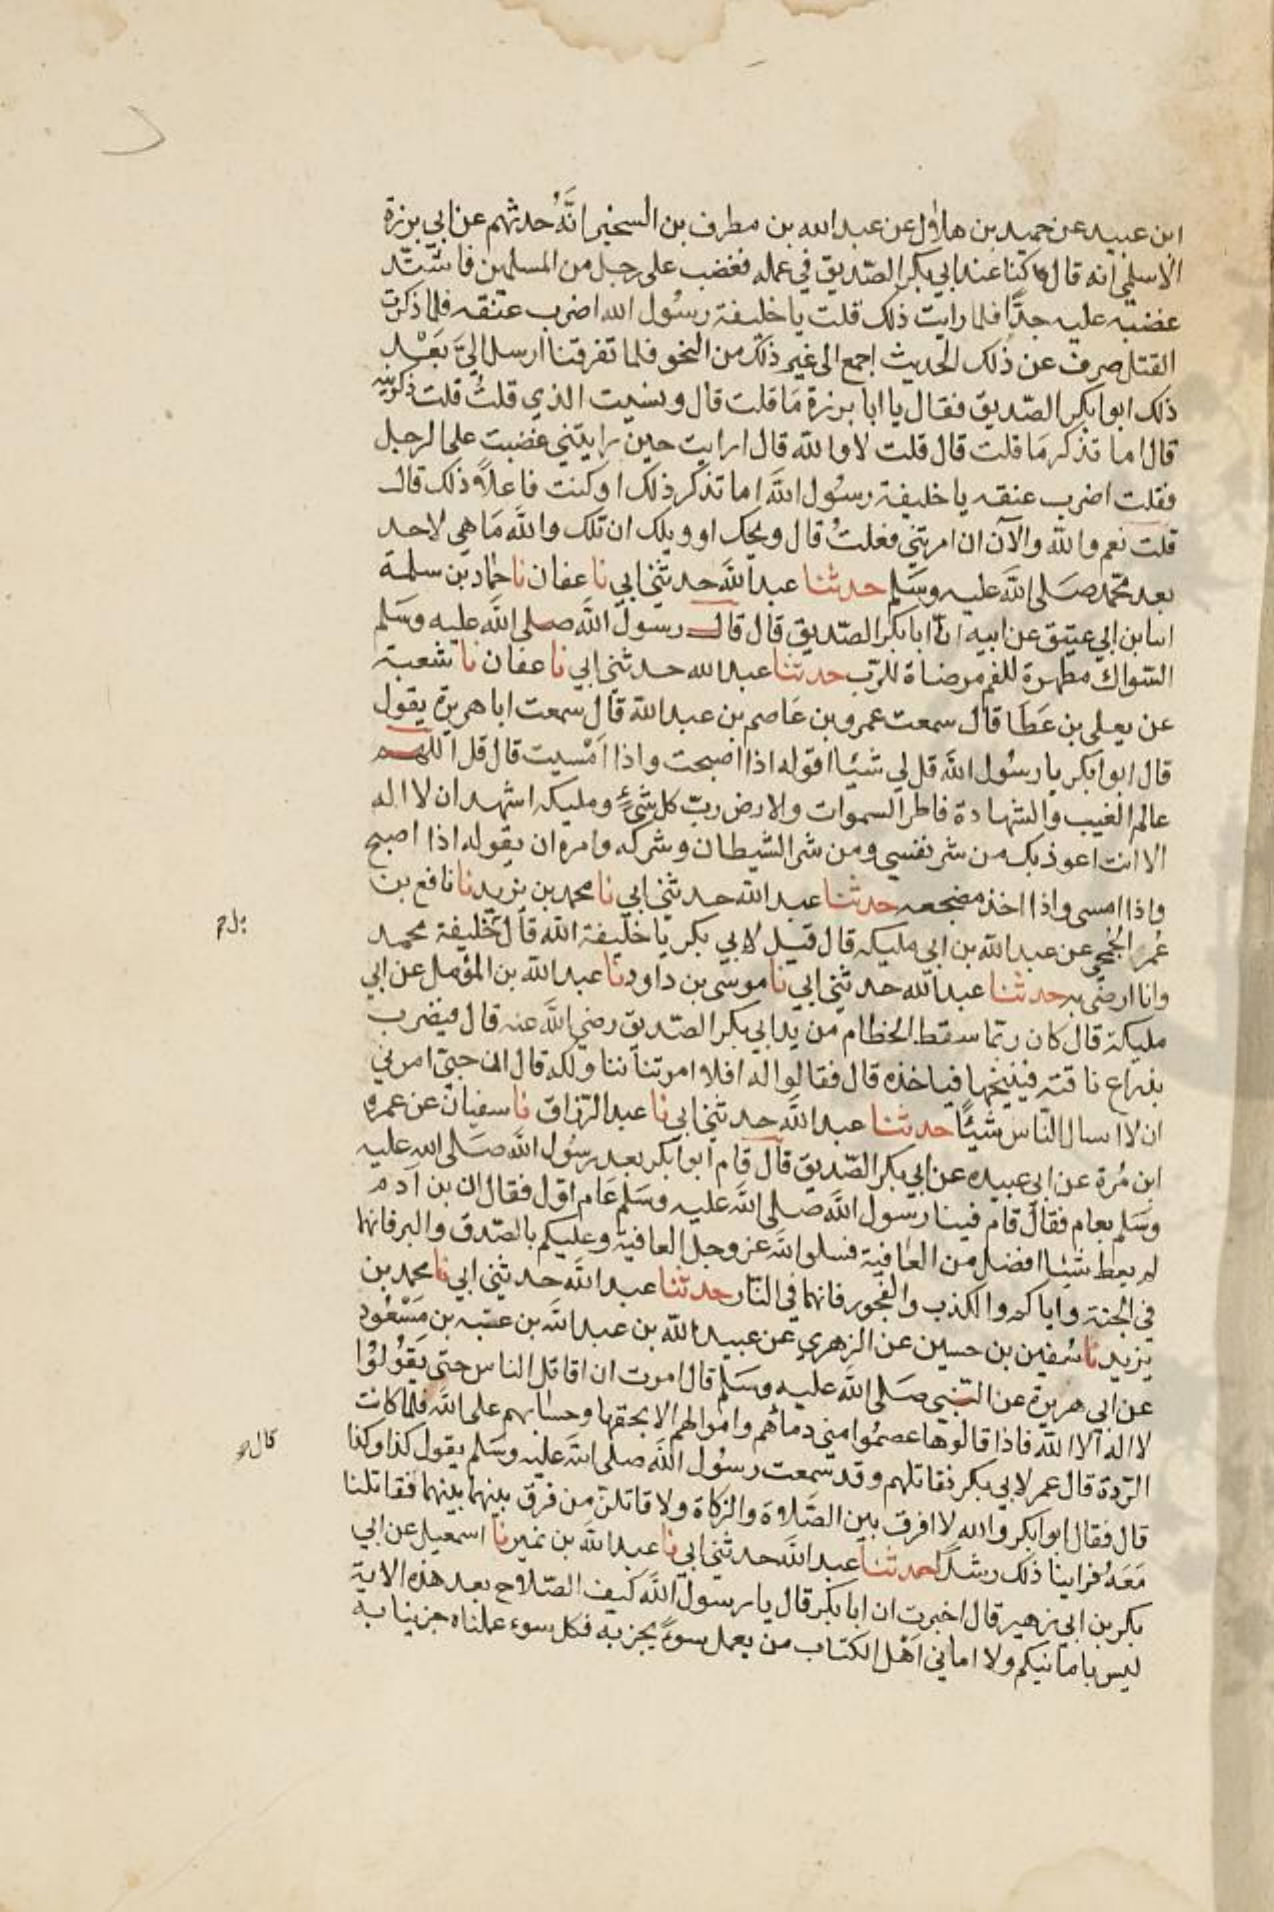 ابن عبيد عن حميد بن هلال عن عبد الله بن مطرف بن السخير انَّهُ حدثهم عن ابي برزة
الاسلمي انه قال كنا عند ابي بكر الصّديق في عمله فغضب على رجل من المسلمين فاشتّد
غضبه عليه جدًّا فلما رايت ذلك قلت يا خليفة رسُول الله اضرب عنقه فلما ذكرت
القتل صرف عن ذلك الحديث اجمع الى غير ذلك من النحو فلما تفرقنا ارسل اليَّ بَعْد
ذلك ابوا بكر الصّديق فقال يا ابا برزة مَا قلت قال ونسيت الذي قلتُ قلت ذكرنيه
قال اما تذكر مَا قلت قال قلت لا والله قال ارايت حين رايتني غضبت على الرجل
فقلت اضرب عنقه يا خليفة رسُول الله اما تذكر ذلك او كنت فاعلاً ذلك قال
قلت نعم والله والآن ان امرتني فعلتُ قال ويحك او ويلك ان تلك والله مَا هي لاحد
بعد محمّد صَلى الله عليه وسَلم حدثنا عبد الله حدثني ابي نا عفان نا حماد بن سلمة
انبا بن ابي عتيق عن ابيه انّ ابا بكر الصّديق قال قال رسول الله صلى الله عليه وسَلم
السّواك مطهرة للفم مرضاة للرّب حدثنا عبد الله حدثني ابي نا عفان نا شعبة
عن يعلى بن عَطَا قال سمعت عمرو بن عَاصم بن عبد الله قال سمعت ابا هريرة يقول
قال ابوا بكر يا رسُول الله قل لي شيئا اقوله اذا اصبحت واذا امْسيت قال قل اللهم
عالم الغيب والشهادة فاطر السموات والارض ربّ كل شيءٍ ومليكه اشهد ان لا اله
الا انت اعوذ بك من شر نفسي ومن شر الشيطان وشركه وامره ان يقوله اذا اصبح
واذا امسى واذا اخذ مضجعه حدثنا عبد الله حدثني ابي نا محمد بن يزيد نا نافع بن
عُمر الجُمحي عن عبد الله بن ابي مليكه قال قيل لابي بكر يا خليفة الله قال خليفة محمد
بل م
وانا ارضَى به حدثنا عبد الله حدثني ابي نا موسى بن داود نا عبد الله بن المؤمل عن ابي
مليكة قال كان ربّما سقط الخطام من يد ابي بكر الصّديق رضي الله عنه قال فيضرب
بذراع ناقته فينيخها فياخذه قال فقالوا له افلا امرتنا نناولكه قال ان حبيّ امرني
ان لا اسال النّاس شيئًا حدثنا عبد الله حدثني ابي نا عبد الرّزاق نا سفيان عن عمرو
ابن مُرة عن ابي عبيده عن ابي بكر الصّديق قال قام ابوا بكر بعد رسُول الله صَلى الله عليه
وسَلم بعام فقال قام فينا رسول الله صلى الله عليه وسَلم عَام اول فقال ان بن آدم
لم يعط شيئا افضل من العافية فسلوا الله عز وجل العافية وعليكم بالصّدق والبر فانهما
في الجنة واياكم والكذب والفجور فانهما في النار حدثنا عبد الله حدثني ابي نا محمد بن
يزيد نا سُفين بن حسين عن الزهري عن عبيد الله بن عبد الله بن عتبه بن مَسْعُود
عن ابي هريرة عن النّبي صَلى الله عليه وسَلم قال امرت ان اقاتل الناس حتى يَقُولُوْا
لا اله الا الله فاذا قالوها عصمُوا مني دماهم واموالهم الا بحقها وحسَابهم على الله فلما كانت
الرّدة قال عمر لابي بكر ذقاتلهم وقد سَمعت رسُول الله صلى الله عليه وسَلم يقول كذا وكذا
قال فقال ابوا بكر والله لا افرق بين الصّلاة والزكاة ولا قاتلن من فرق بينهما بينهما فقاتلنا
مَعَهُ فراينا ذلك رشدًا حدثنا عبد الله حدثني ابي نا عبد الله بن نمير نا اسمعيل عن ابي
بكر بن ابي زهير قال اخبرت ان ابا بكر قال يا رسول الله كيف الصّلاح بعد هذه الاية
ليس بامانيكم ولا اماني اهْل الكتاب من يعمل سوءً يجز به فكل سوء عملناه جزينا به